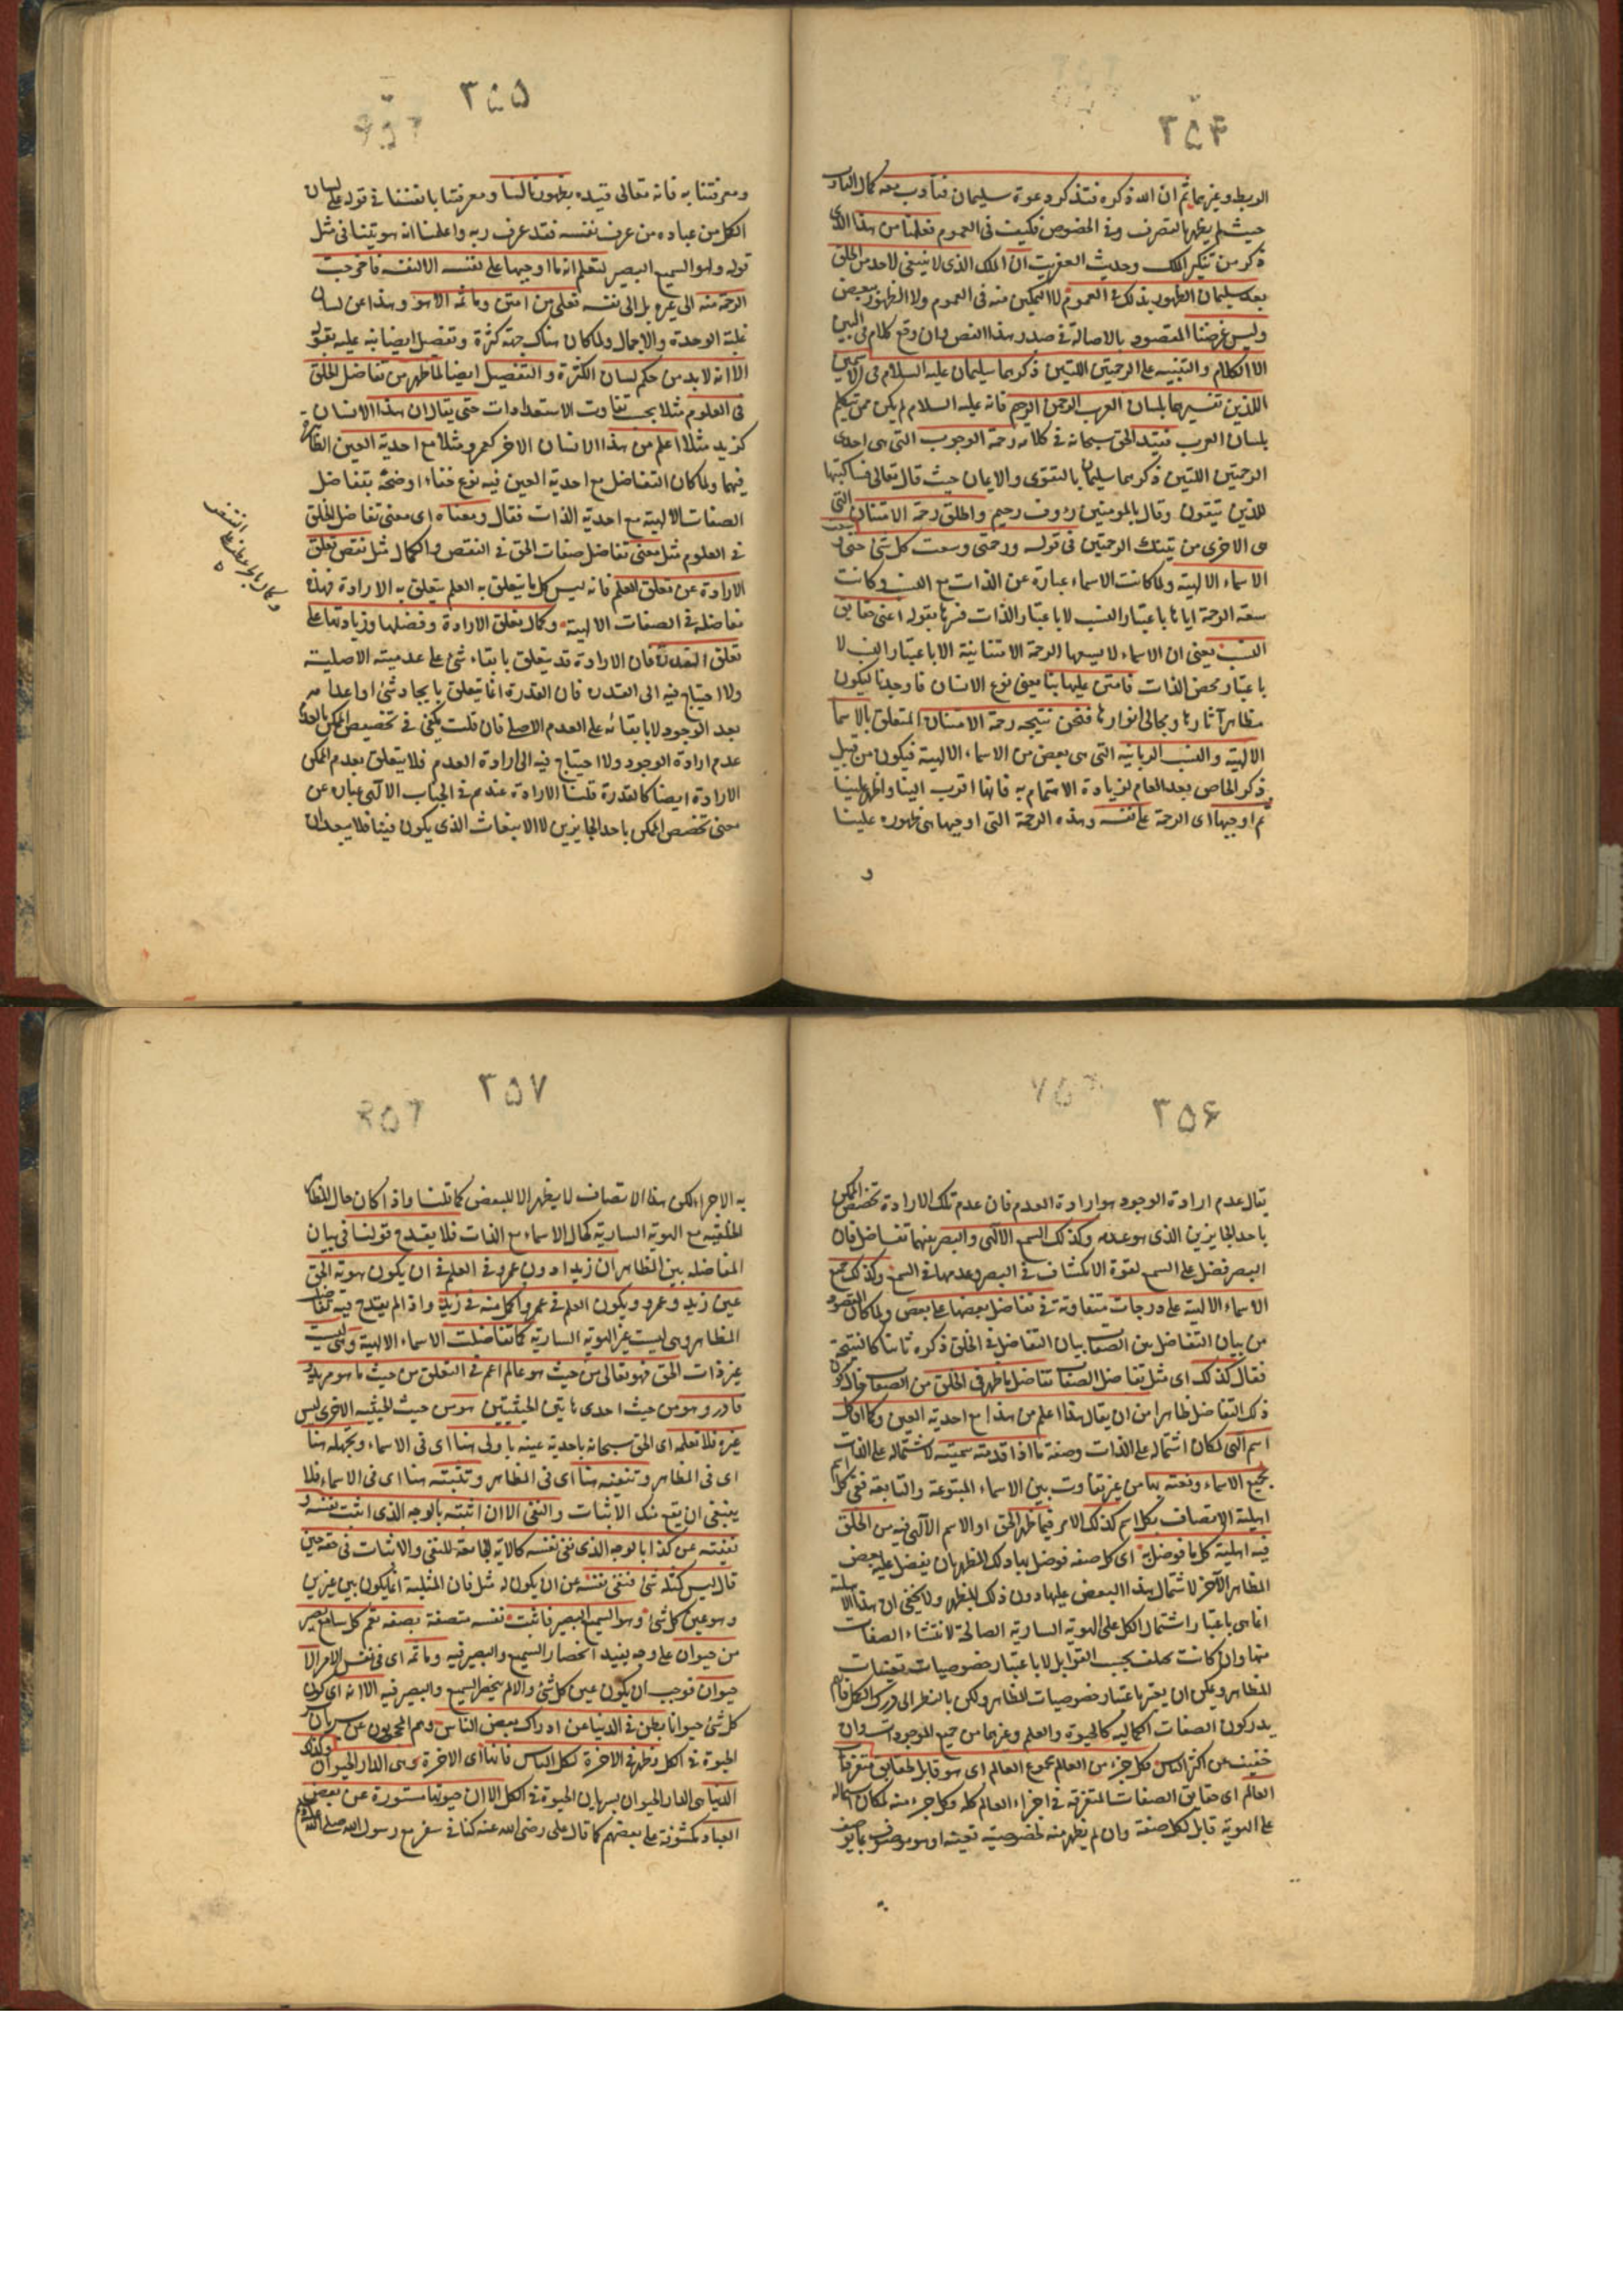 ٣٥۴
الربط وغيرهما ثم ان الله ذكره فتذكر دعوة سليمان فتأدب معه كمال التأدب
حيث لم يظهر بالتصرف وفى الخصوص فكيف فى العموم فعلمنا من هذا الذى
ذكر من تنكير الملك وحديث العفريت ان الملك الذى لا ينبغى لاحد من الخلق
بعد سليمان الظهور بذلك فى العموم لا التمكين منه فى العموم ولا الظهور ببعض
وليس غرضنا المقصود بالاصالة فى صدر هذا الفص وان وقع كلام فى البين
الا الكلام والتنبيه على الرحمتين اللتين ذكرهما سليمان عليه السلام فى الاسمين
اللذين تفسيرهما بلسان العرب الرحمن الرحيم فانه عليه السلام لم يكن ممن يتكلم
بلسان العرب فقيد الحق سبحانه فى كلامه رحمة الوجوب التى هى احدى
الرحمتين اللتين ذكرهما سليمان بالتقوى والايمان حيث قال تعالى فساكتبها
للذين يتقون وقال بالمومنين رؤوف رحيم واطلق رحمة الامتنان التى
هى الاخرى من تينك الرحمتين فى قوله ورحمتى وسعت كل شئ حتى
الاسماء الالهية ولما كانت الاسماء عبارة عن الذات مع النسب وكانت
سعة الرحمة اياها باعتبار النسب لا باعتبار الذات فسرها بقوله اعنى حقايق
النسب يعنى ان الاسماء لا يسعها الرحمة الامتنانية الا باعتبار النسب لا
باعتبار محض الذات فامتن عليها بنا معنى نوع الانسان فاوجدنا ليكون
مظاهر آثارها ومجالى انوارها فنحن نتيجة رحمة الامتنان المتعلق بالاسما
الالهية والنسب الربانية التى هى بعض من الاسماء الالهية فيكون من قبيل
ذكر الخاص بعد العام لزيادة الاهتمام به فانها اقرب الينا واظهر علينا
ثم اوجبها اى الرحمة على نفسه وهذه الرحمة التى اوجبها هى ظهوره علينا
و
٣٥۵
ومعرفتنا به فانه تعالى قيده بظهورنا لنا ومعرفتنا بانفسنا فى قوله على لسان
الكل من عباده من عرف نفسه فقد عرف ربه واعلمنا انه هويتنا فى مثل
قوله وهو السميع البصير لتعلم انه ما اوجبها على نفسه الا لنفسه فما خرجت
الرحمة منه الى غيره بل الى نفسه فعلى من امتن وما ثمه الا هو وهذا عن لسان
غلبة الوحدة والاجمال ولما كان هناك جهة كثرة وتفصيل ايضا نبه عليه بقوله
الا انه لا بد من حكم لسان الكثرة والتفصيل ايضا لما ظهر من تفاضل الخلق
فى العلوم مثلا بحسب تفاوت الاستعدادات حتى يقال ان هذا الانسان
كزيد مثلا اعلم من هذا الانسان الاخر كعمرو مثلا مع احدية العين الظاهرة
فيهما ولما كان التفاضل مع احدية العين فيه نوع خفاء اوضحه بتفاضل
الصفات الالهية مع احدية الذات فقال ومعناه اى معنى تفاضل الخلق
فى العلوم مثل معنى تفاضل صفات الحق فى النقص والكمال مثل نقص تعلق
الارادة عن تعلق العلم فانه ليس كل ما يتعلق به العلم يتعلق به الارادة فهذه
مفاضلة فى الصفات الالهية وكمال تعلق الارادة وفضلها وزيادتها على
تعلق القدرة فان الارادة قد يتعلق بابقاء شئ على عدميته الاصلية
ولا احتياج فيه الى القدرة فان القدرة انما يتعلق بايجاد شئ او اعدامه
بعد الوجود لا بابقائه على العدم الاصلى فان قلت يكفى فى تخصيص الممكن بالعدم
عدم ارادة الوجود ولا احتياج فيه الى ارادة العدم فلا يتعلق بعدم الممكن
الارادة ايضا كالقدرة قلنا الارادة عندهم فى الجناب الآلهى عبارة عن
معنى تخصص الممكن باحد الجايزين لا الانبعاث الذى يكون فينا فلا يبعد ان
٣۵۶
يقال عدم ارادة الوجود هو ارادة العدم فان عدم تلك الارادة تخصص الممكن
باحد الجايزين الذى هو عدمه وكذلك السمع الآلهى والبصر بينهما تفاضل فان
البصر فضل على السمع لقوة الانكشاف فى البصر وعدمها فى السمع وكذلك جميع
الاسماء الالهية على درجات متفاوتة فى تفاضل بعضها على بعض ولما كان المقصود
من بيان التفاضل بين الصفات بيان التفاضل فى الخلق ذكره ثانيا كالنتيجة
فقال كذلك اى مثل تفاضل الصفات تفاضل ما ظهر فى الخلق من الصفات حال كون
ذلك التفاضل ظاهرا من ان يقال هذا اعلم من هذا مع احدية العين وكما ان كل
اسم آلهى لمكان اشتماله على الذات وصفة ما اذا قدمته سميته لاشتماله على الذات
بجميع الاسماء ونعته بها من غير تفاوت بين الاسماء المتبوعة والتابعة ففى كل اسم
اهلية الاتصاف بكل اسم كذلك الامر فيما ظهر الحق او الاسم الآلهى فيه من الخلق
فيه اهلية كل ما فوضل به اى كل صفة فوضل بها ذلك المظهر بان يفضل عليه بعض
المظاهر الآخر لاشتمال هذا البعض عليها دون ذلك المظهر ولا يخفى ان هذا الاهلية
انما هى باعتبار اشتمال الكل على الهوية السارية الصالحة لانتشاء الصفات
منها وان كانت يختلف بحسب القوابل لا باعتبار خصوصيات تعينات
المظاهر ويمكن ان يعتبر باعتبار خصوصيات المظاهر ولكن بالنظر الى درك الكمل فانهم
يدركون الصفات الكمالية كالحيوة والعلم وغيرهما من جميع الموجودات وان
خفيت عن اكثر الناس فكل جزء من العالم مجموع العالم اى هو قابل لحقايق متفرقات
العالم اى حقايق الصفات المتفرقة فى اجزاء العالم كله فكل جزء منه لمكان اشتماله
على الهوية قابل لكل صفة وان لم يظهر منه لخصوصية تعينه او هو موصوف بما يوصف
٣۵٧
به الاجزاء لكن هذا الاتصاف لا يظهر الا للبعض كما قلنا واذا كان حال المظاهر
الخلقية مع الهوية السارية كحال الاسماء مع الذات فلا يقدح قولنا فى بيان
المفاضلة بين المظاهر ان زيدا دون عمرو فى العلم فى ان يكون هوية الحق
عين زيد وعمرو ويكون العلم فى عمرو اكمل منه فى زيد واذا لم يقدح فيه تفاضل
المظاهر وهى ليست غير الهوية السارية كما تفاضلت الاسماء الالهية وهى ليست
غير ذات الحق فهو تعالى من حيث هو عالم اعم فى التعلق من حيث ما هو مريد و
قادر وهو من حيث احدى هاتين الحيثيتين هو من حيث الحيثية الاخرى ليس
غيره فلا تعلمه اى الحق سبحانه باحدية عينه يا ولى هنا اى فى الاسماء وتجهله هنا
اى فى المظاهر وتنفيه هنا اى فى المظاهر وتثبته هنا اى فى الاسماء فلا
ينبغى ان يقع منك الاثبات والنفى الا ان اثبته بالوجه الذى اثبت نفسه و
نفيته عن كذا بالوجه الذى نفى نفسه كالآية الجامعة للنفى والاثبات فى حقه حين
قال ليس كمثله شئ فنفى نفسه عن ان يكون له مثل فان المثلية انما يكون بين غيرين
وهو عين كل شئ وهو السميع البصير فاثبت نفسه متصفة بصفة تعم كل سامع بصير
من حيوان على وجه يفيد انحصار السميع والبصير فيه وما ثمه اى فى نفس الامر الا
حيوان فوجب ان يكون عين كل شئ والا لم ينحصر السميع والبصير فيه الا انه اى كون
كل شئ حيوانا بطن فى الدنيا عن ادراك بعض الناس وهم المحجوبون عن سريان
الحيوة فى الكل وظهر فى الاخرة لكل الناس فانها اى الاخرة هى الدار الحيوان وكذلك
الدنيا هى الدار الحيوان بسريان الحيوة فى الكل الا ان حيوتها مستورة عن بعض
العباد مكشوفة على بعضهم كما قال على رضى الله عنه كنا فى سفر مع رسول الله صلى الله عليه وسلم